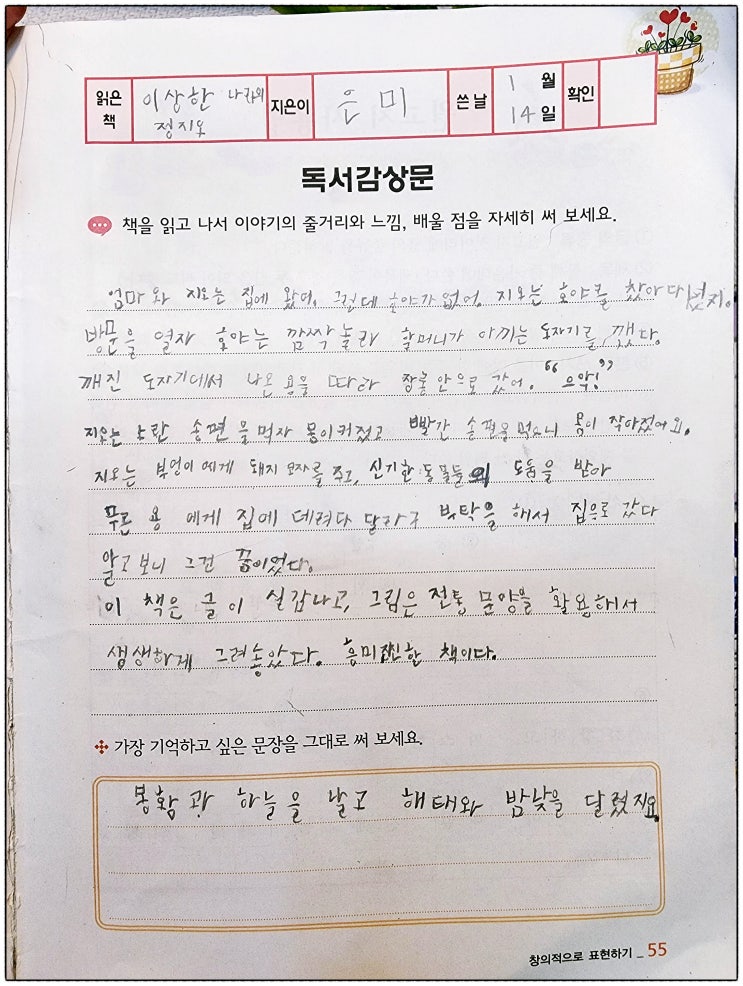 읽은 책 이상한 나라의 정지오 지은이 은미 쓴 날 1월 14일 확인
독서감상문
책을 읽고 나서 이야기의 줄거리와 느낌, 배울 점을 자세히 써 보세요.
엄마와 지오는 집에 왔어. 그런데 호야가 없어. 지오는 호야를 찾아다녔지.
방문을 열자 호야는 깜짝놀라 할머니가 아끼는 도자기를 깼다.
깨진 도자기에서 나온 용을 따라 장롱 안으로 갔어. "으악!"
지오는 노란 송편을 먹자 몸이커졌고 빨간 송편을 먹으니 몸이 작아졌어요.
지오는 부엉이에게 돼지 모자를 주고, 신기한 동물들의 도움을 받아
푸른 용에게 집에 데려다 달라고 부탁을 해서 집으로 갔다
알고보니 그건 꿈이었다.
이 책은 글이 실감나고, 그림은 전통 문양을 활용해서
생생하게 그려놓았다. 흥미진진한 책이다.
가장 기억하고 싶은 문장을 그대로 써 보세요.
봉황과 하늘을 날고 해태와 밤낮을 달렸지요.
창의적으로 표현하기 _ 55